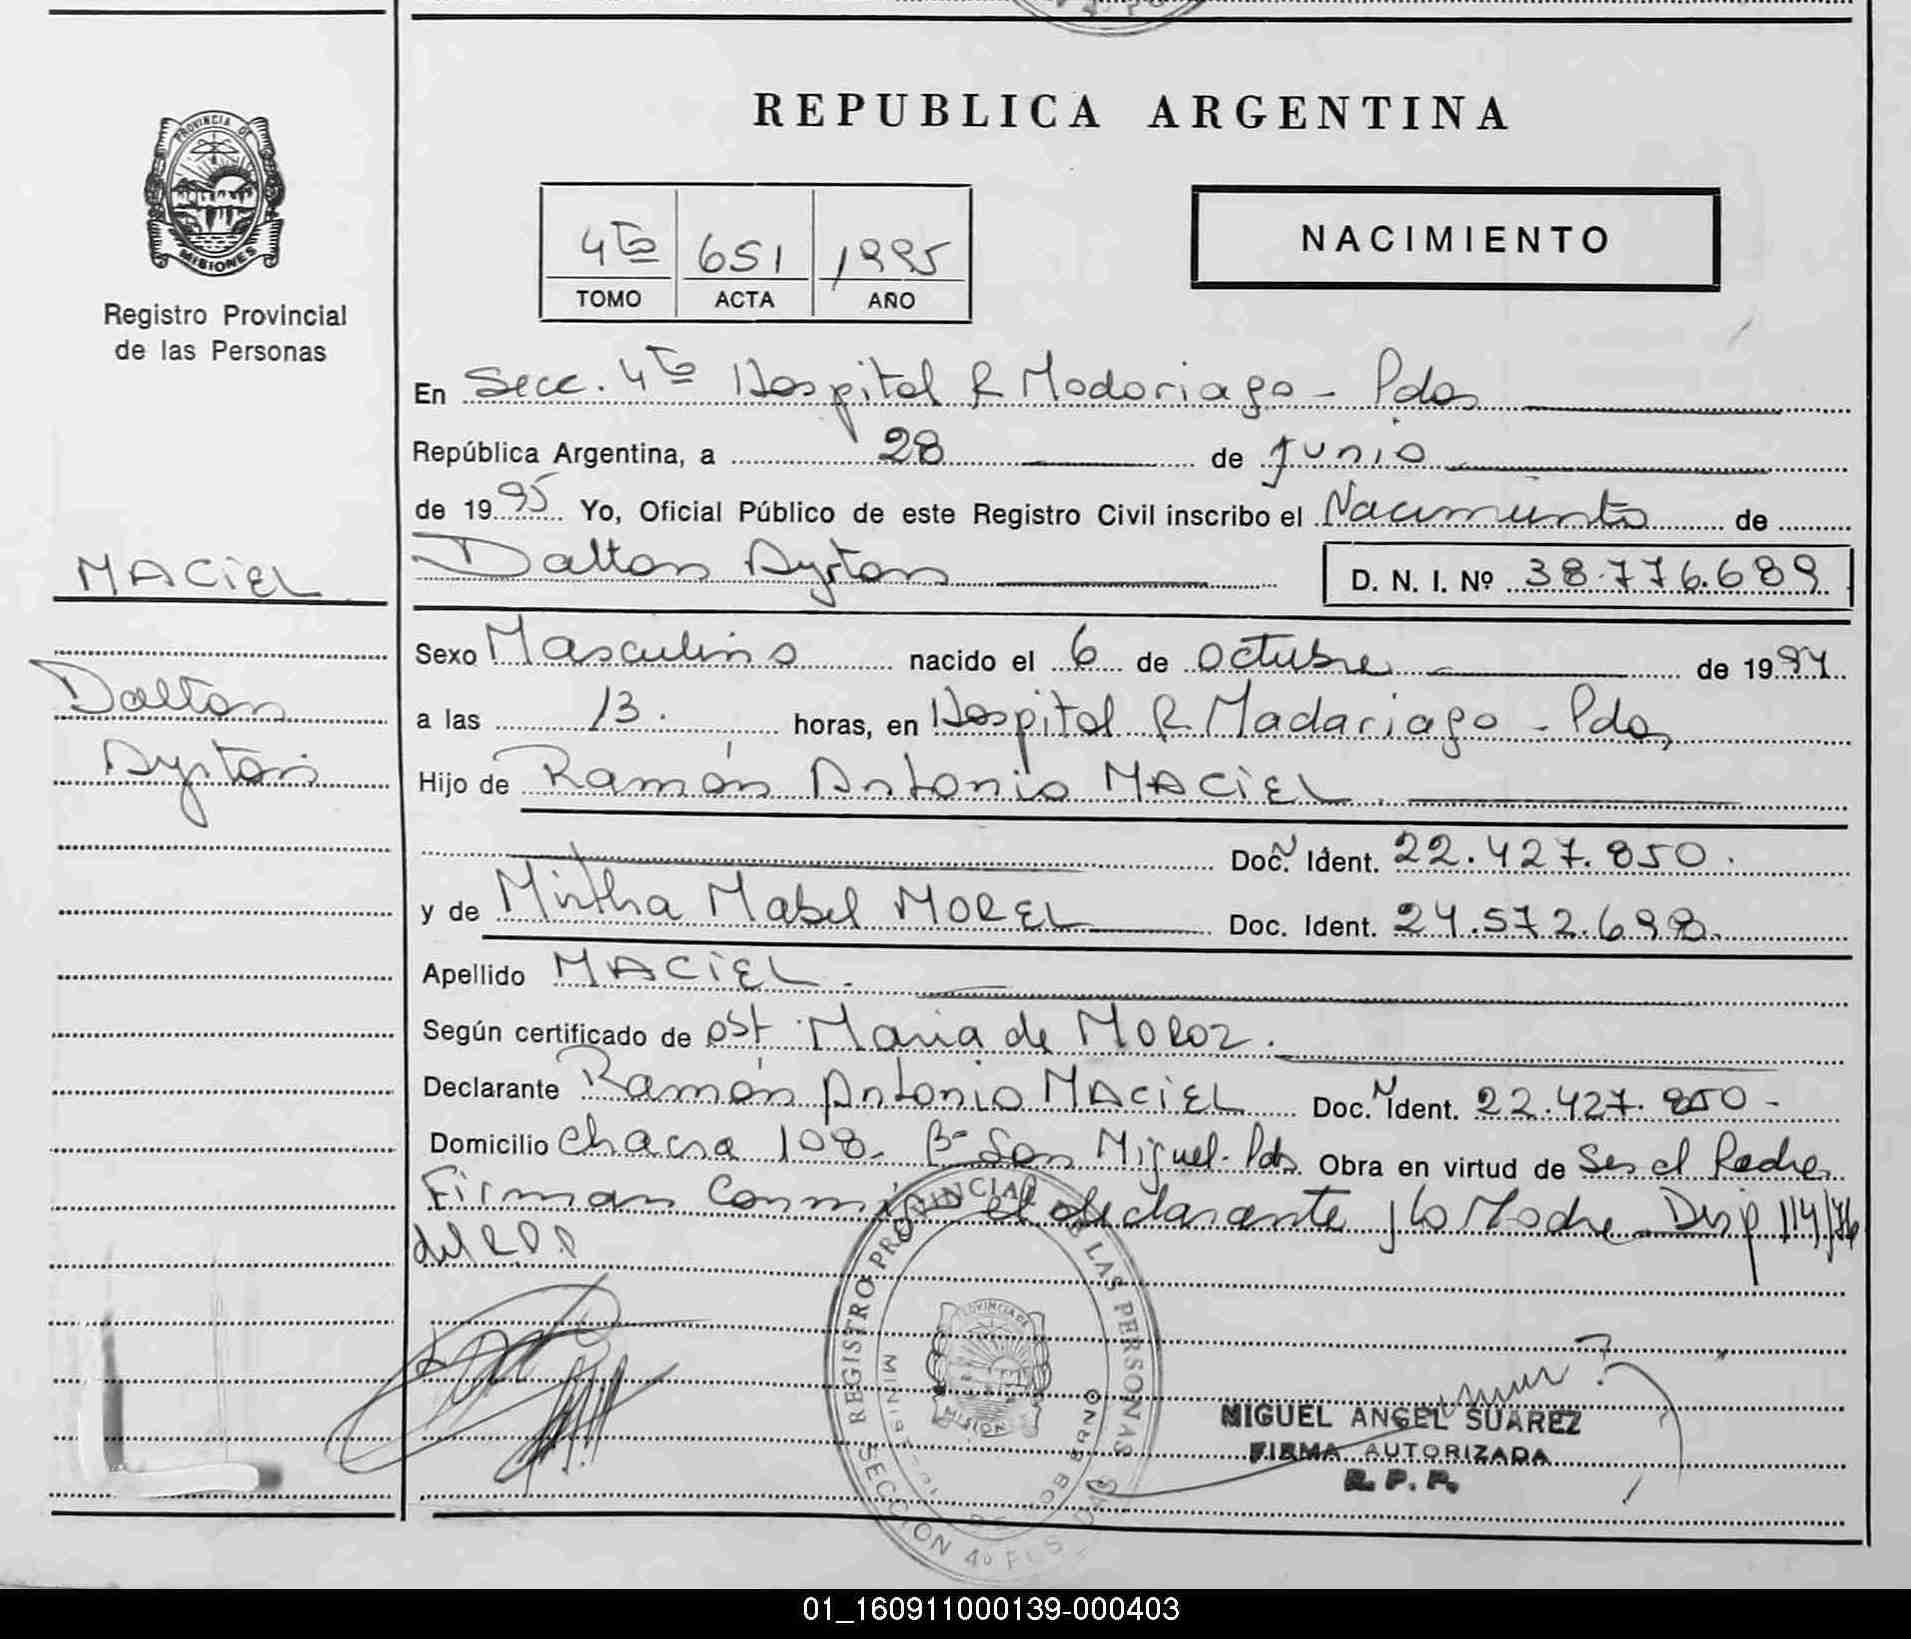 REPUBLICA ARGENTINA
PROVINCIA DE
MISIONES
Registro Provincial
de las Personas
4to 651 1995
TOMO ACTA AÑO
NACIMIENTO
En Secc. 4ta Hospital R Madariaga - Pdas
República Argentina, a 28 de Junio
de 1995 Yo, Oficial Público de este Registro Civil inscribo el Nacimiento de
Dalton Ayrton D. N. I. Nº 38.776.689
MACiEL
Dalton
Ayrton
Sexo Masculino nacido el 6 de octubre de 1994
a las 13. horas, en Hospital R Madariaga - Pdas
Hijo de Ramón Antonio MACiEL
Doc. Ident. 22.427.850.
y de Mirtha Mabel MOREL Doc. Ident. 24.572.698.
Apellido MACiEL.
Según certificado de obst María de MOROZ.
Declarante Ramón Antonio MACiEL Doc. Ident. 22.427.850-
Domicilio Chacra 108- Bº San Miguel- Pds Obra en virtud de Ser el Padre
Firman conmigo el declarante y la Madre Disp 114/76
del R.P.P
REGISTRO PROVINCIAL DE LAS PERSONAS
SECCION 4º
MIGUEL ANGEL SUAREZ
FIRMA AUTORIZADA
R. P. P.
01_160911000139-000403